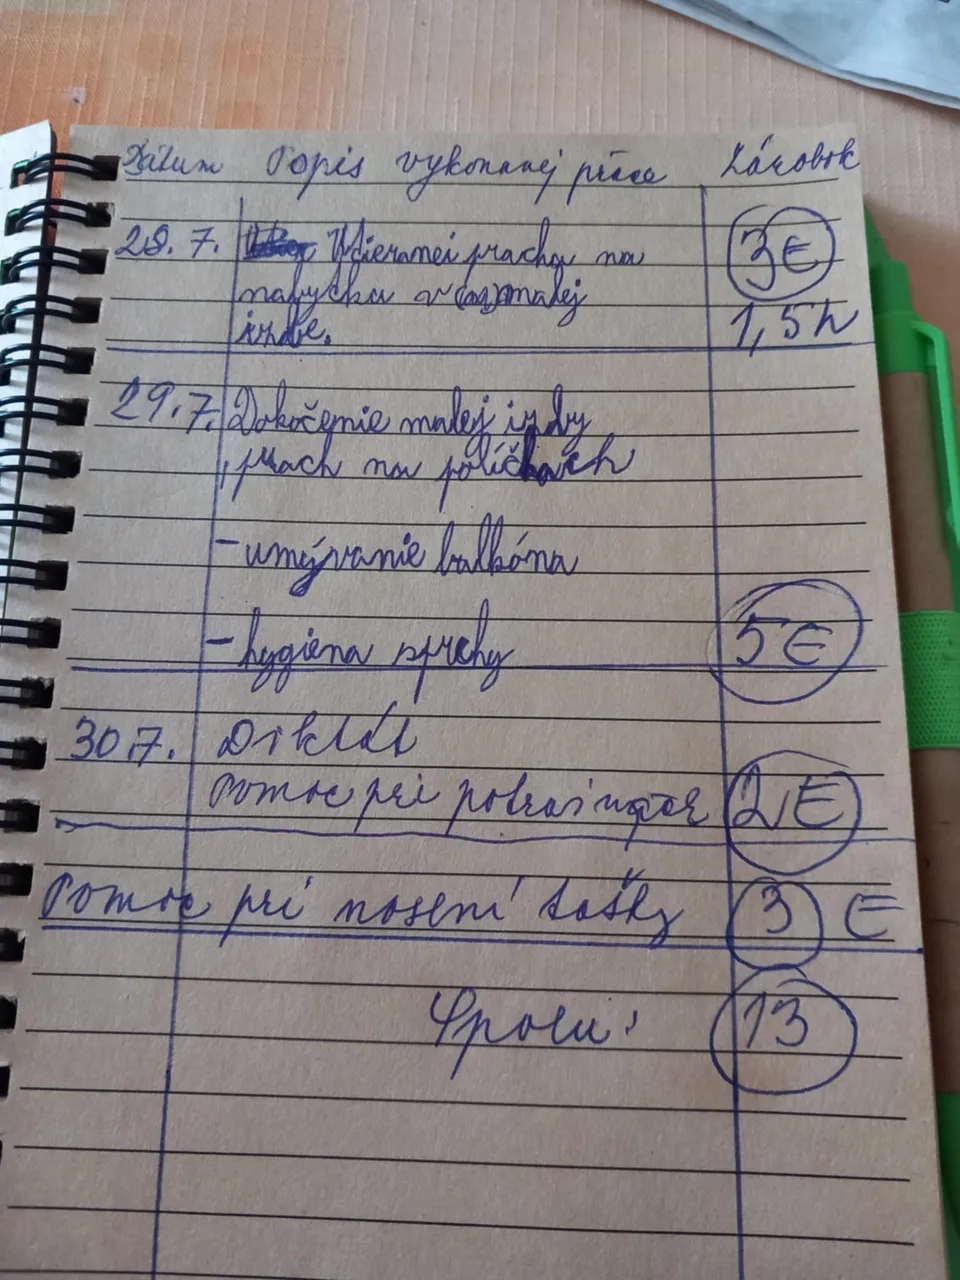 Dátum Popis vykonanej práce Zárobok
28. 7. Utieranei prachu na 3€
nabytku v malej
izbe. 1,5h
29.7. Dokočenie malej izby
, prach na poličkach
- umývanie balkóna
- hygiena sprchy 5€
30.7. Diktát
Pomoc pri 2€
Pomoc pri nosení tašky 3 €
Spolu: 13